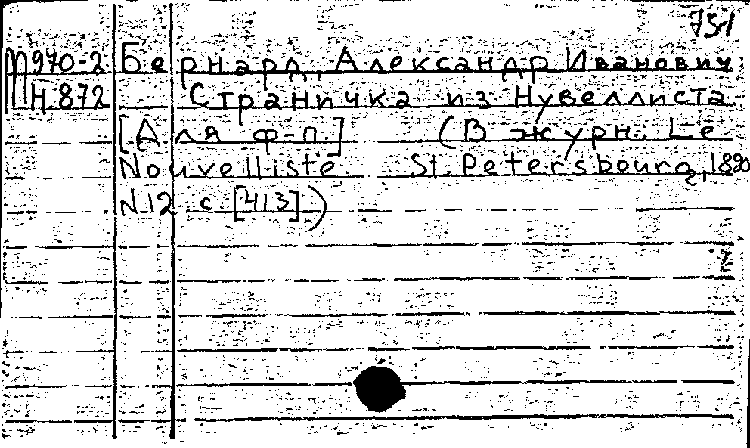 751
М970-2 Бернард, Александр Иванович
Н872 Страничка из Нувеллиста
[Для ф-п.] (В журн. Le
Nouvelliste St. Petersbourg, 1890
N12 с [413].)